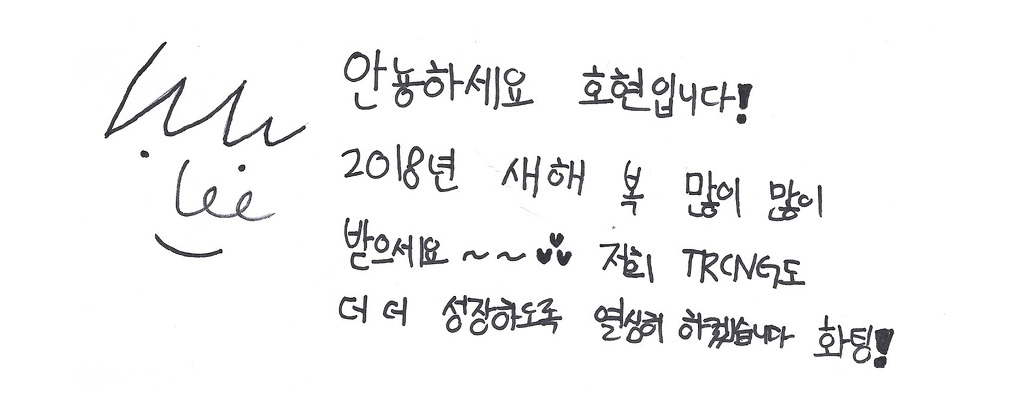 안뇽하세요 호현입니다!
2018년 새해 복 많이 많이
받으세요~~ 저희 TRCNG도
더 더 성장하도록 열심히 하겠습니다 화팅!
lee